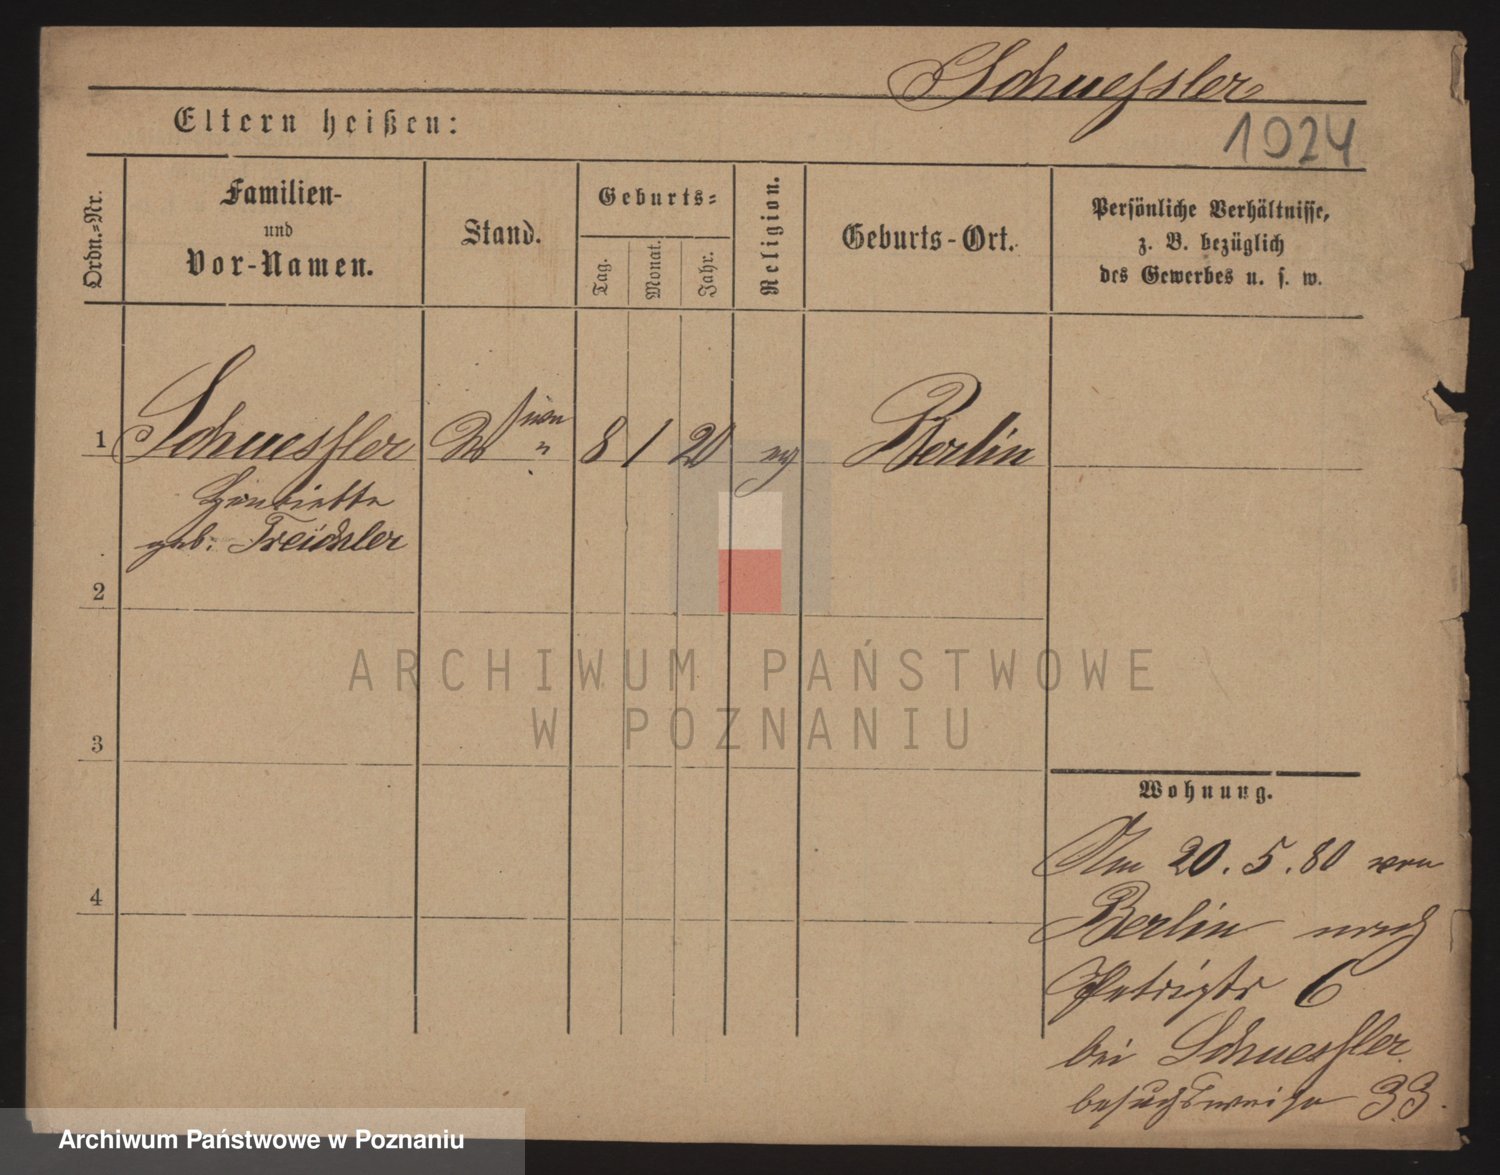 Schuessler
Eltern heißen:
1024
Ordn.-Nr.
Familien-
und
Vor-Namen.
Stand.
Geburts-
Tag.
Monat.
Jahr.
Religion.
Geburts-Ort.
Persönliche Verhältnisse,
z. B. bezüglich
des Gewerbes u. s. w.
1 Schuessler 8 1 20 ev Berlin
Henriette
geb. Treichler
2
3
4
Wohnung.
Am 20.5.80 von
Berlin nach
6
bei Schuessler
besuchsweise 33.
ARCHIWUM PAŃSTWOWE
W POZNANIU
Archiwum Państwowe w Poznaniu